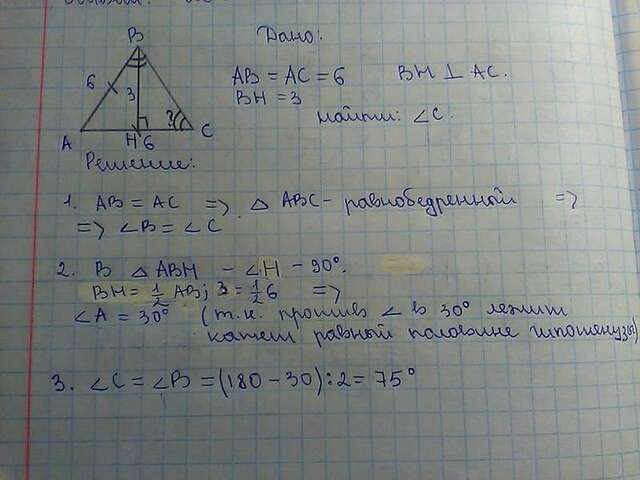 Дано:
B
6
3
?
A
H 6
C
AB = AC = 6 BH ⊥ AC.
BH = 3
найти: ∠C.
Решение:
1. AB = AC => △ ABC - равнобедренный =>
=> ∠B = ∠C
2. В △ ABH - ∠H - 90°.
BH = 1/2 AB; 3 = 1/2 6 =>
∠A = 30° (т.к. против ∠ в 30° лежит
катет равный половине гипотенузы)
3. ∠C = ∠B = (180 - 30) : 2 = 75°